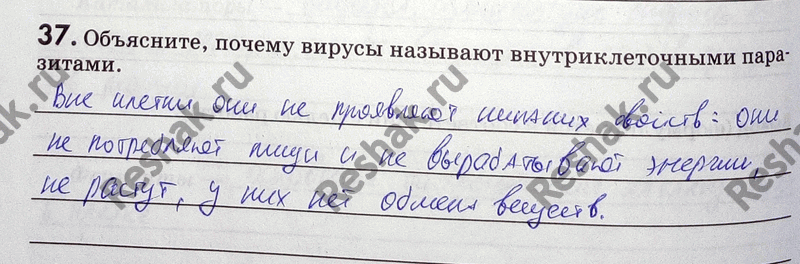 37. Объясните, почему вирусы называют внутриклеточными пара-
зитами.
Вне клетки они не проявляют никаких свойств: они
не потребляют пищи и не вырабатывают энергии,
не растут, у них нет обмена веществ.
Reshak.ru
Reshak.ru
Reshak.ru
Reshak.ru